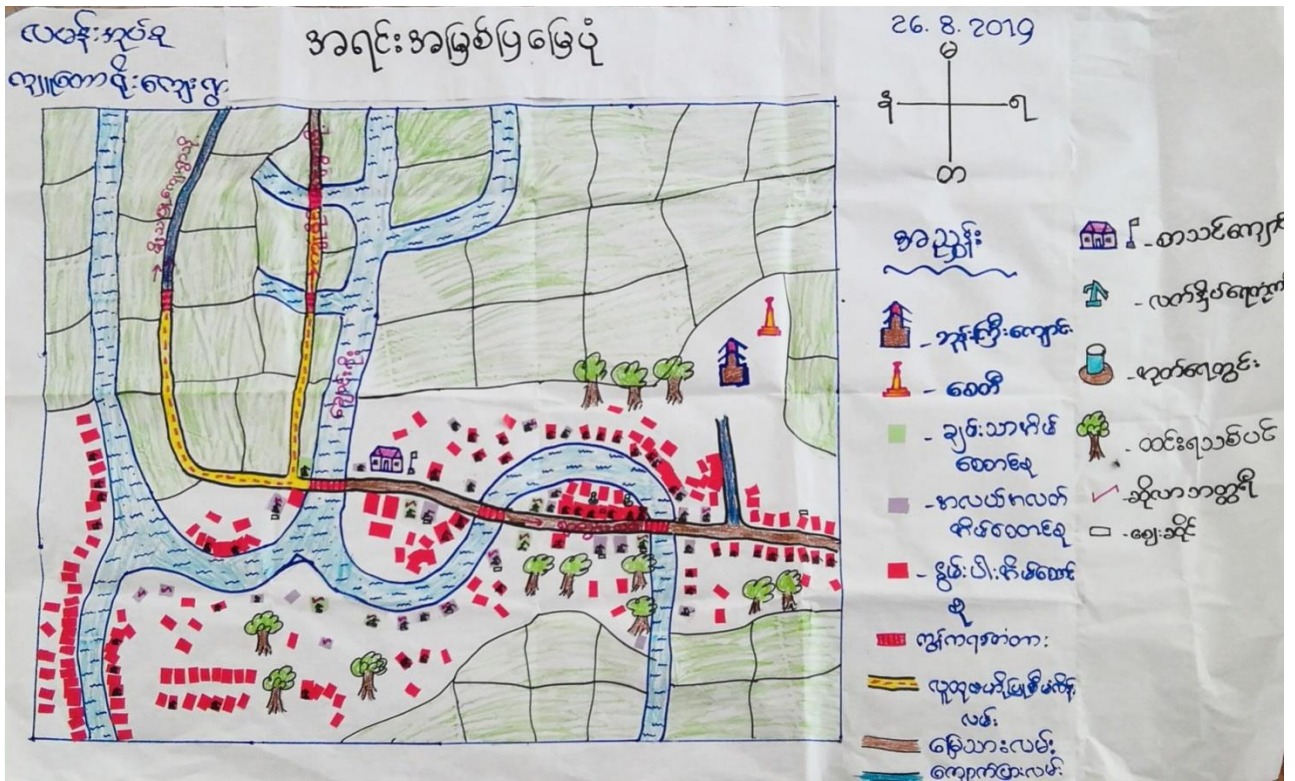 လမန်းအုပ်စု
ကျူတောရိုးကျေးရွာ
အရင်းအမြစ်ပြမြေပုံ
26.8.2019
မ
န
ရ
တ
အညွှန်း
- ဘုန်းကြီးကျောင်း
- စေတီ
- ချမ်းသာအိမ်
ထောင်စု
- အလယ်အလတ်
အိမ်ထောင်စု
- နွမ်းပါးအိမ်ထောင်
စု
ကွန်ကရစ်တံတား
လမ်း
မြေသားလမ်း
ကျောက်ပြားလမ်း
- စာသင်ကျောင်း
- လက်နှိပ်ရေတုံကင်
- အုတ်ရေတွင်း
- ထင်းရသစ်ပင်
- ဆိုလာဘတ္ထရီ
- ဈေးဆိုင်